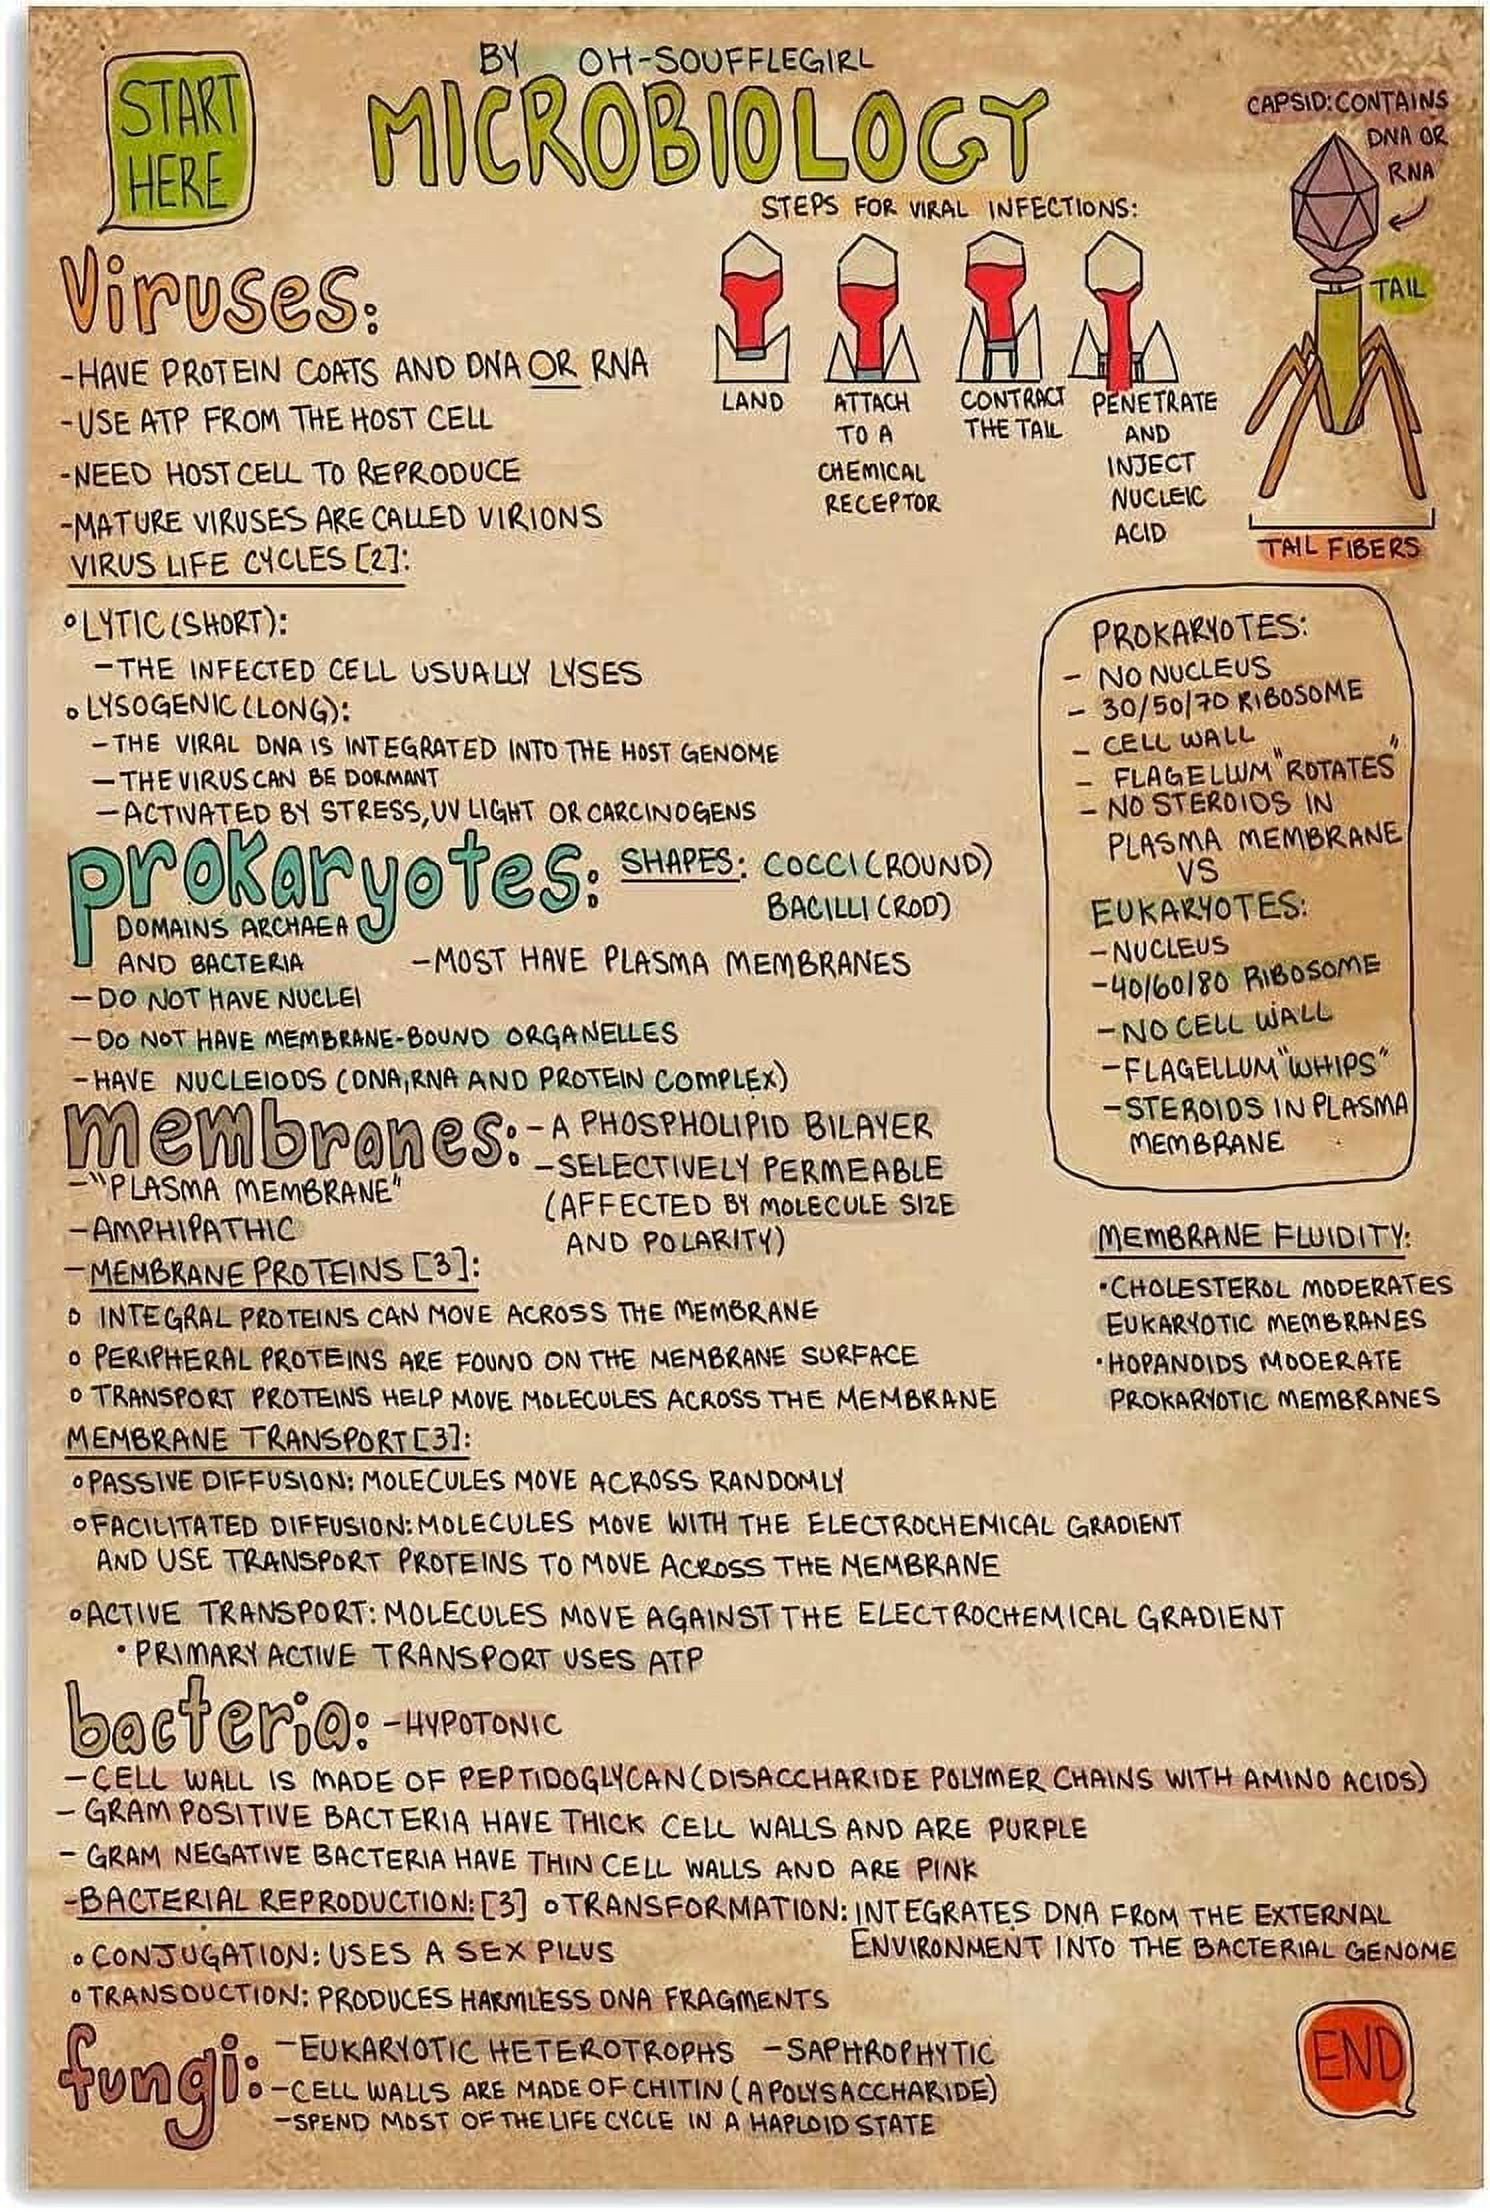 START
HERE
BY OH-SOUFFLEGIRL
MICROBIOLOGY
CAPSID: CONTAINS
DNA OR
RNA
TAIL
TAIL FIBERS
STEPS FOR VIRAL INFECTIONS:
LAND
ATTACH
TO A
CHEMICAL
RECEPTOR
CONTRACT
THE TAIL
PENETRATE
AND
INJECT
NUCLEIC
ACID
Viruses:
-HAVE PROTEIN COATS AND DNA OR RNA
-USE ATP FROM THE HOST CELL
-NEED HOST CELL TO REPRODUCE
-MATURE VIRUSES ARE CALLED VIRIONS
VIRUS LIFE CYCLES [2]:
°LYTIC (SHORT):
-THE INFECTED CELL USUALLY LYSES
°LYSOGENIC (LONG):
-THE VIRAL DNA IS INTEGRATED INTO THE HOST GENOME
-THE VIRUS CAN BE DORMANT
-ACTIVATED BY STRESS, UV LIGHT OR CARCINOGENS
PROKARYOTES:
- NO NUCLEUS
- 30/50/70 RIBOSOME
- CELL WALL
- FLAGELLUM "ROTATES"
- NO STEROIDS IN
PLASMA MEMBRANE
VS
EUKARYOTES:
-NUCLEUS
-40/60/80 RIBOSOME
-NO CELL WALL
-FLAGELLUM "WHIPS"
-STEROIDS IN PLASMA
MEMBRANE
prokaryotes: SHAPES: COCCI (ROUND)
BACILLI (ROD)
DOMAINS ARCHAEA
AND BACTERIA
-MOST HAVE PLASMA MEMBRANES
-DO NOT HAVE NUCLEI
-DO NOT HAVE MEMBRANE-BOUND ORGANELLES
-HAVE NUCLEIODS (DNA, RNA AND PROTEIN COMPLEX)
membranes: -A PHOSPHOLIPID BILAYER
-SELECTIVELY PERMEABLE
(AFFECTED BY MOLECULE SIZE
AND POLARITY)
-"PLASMA MEMBRANE"
-AMPHIPATHIC
-MEMBRANE PROTEINS [3]:
° INTEGRAL PROTEINS CAN MOVE ACROSS THE MEMBRANE
° PERIPHERAL PROTEINS ARE FOUND ON THE MEMBRANE SURFACE
° TRANSPORT PROTEINS HELP MOVE MOLECULES ACROSS THE MEMBRANE
MEMBRANE FLUIDITY:
•CHOLESTEROL MODERATES
EUKARYOTIC MEMBRANES
•HOPANOIDS MODERATE
PROKARYOTIC MEMBRANES
MEMBRANE TRANSPORT [3]:
°PASSIVE DIFFUSION: MOLECULES MOVE ACROSS RANDOMLY
°FACILITATED DIFFUSION: MOLECULES MOVE WITH THE ELECTROCHEMICAL GRADIENT
AND USE TRANSPORT PROTEINS TO MOVE ACROSS THE MEMBRANE
°ACTIVE TRANSPORT: MOLECULES MOVE AGAINST THE ELECTROCHEMICAL GRADIENT
•PRIMARY ACTIVE TRANSPORT USES ATP
bacteria: -HYPOTONIC
-CELL WALL IS MADE OF PEPTIDOGLYCAN (DISACCHARIDE POLYMER CHAINS WITH AMINO ACIDS)
- GRAM POSITIVE BACTERIA HAVE THICK CELL WALLS AND ARE PURPLE
- GRAM NEGATIVE BACTERIA HAVE THIN CELL WALLS AND ARE PINK
-BACTERIAL REPRODUCTION: [3] °TRANSFORMATION: INTEGRATES DNA FROM THE EXTERNAL
ENVIRONMENT INTO THE BACTERIAL GENOME
°CONJUGATION: USES A SEX PILUS
°TRANSDUCTION: PRODUCES HARMLESS DNA FRAGMENTS
fungi: -EUKARYOTIC HETEROTROPHS -SAPHROPHYTIC
-CELL WALLS ARE MADE OF CHITIN (A POLYSACCHARIDE)
-SPEND MOST OF THE LIFE CYCLE IN A HAPLOID STATE
END